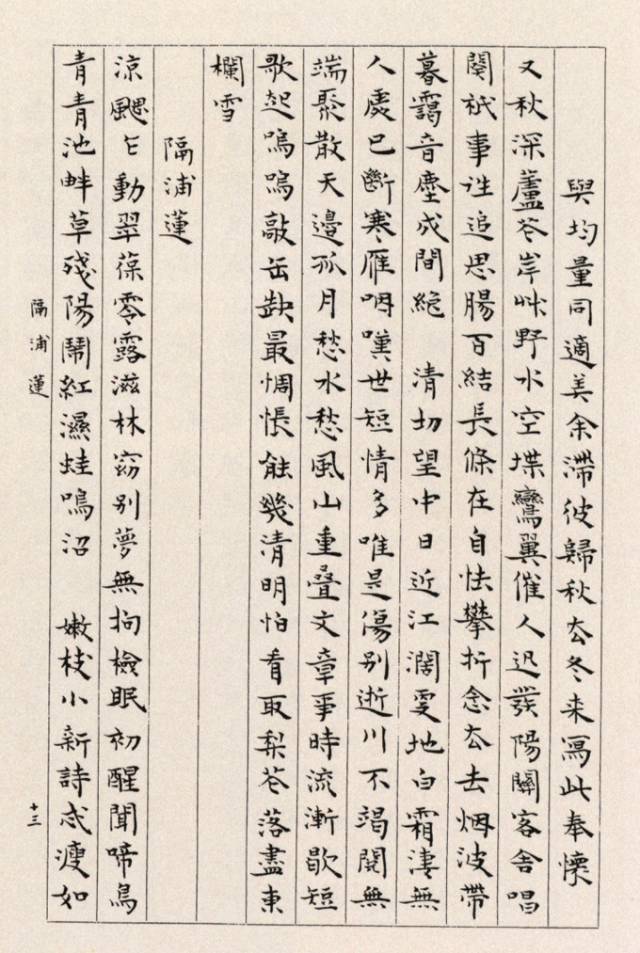 與均量同適美余滯彼歸秋去冬来寫此奉懷
又秋深蘆花岸艸野水空堞鸞翼催人迟發陽關客舍唱
闋祇事谁追思腸百結長條在自怯攀折念去去烟波帶
暮靄音塵成間絕　清切望中日近江濶雯地白霜淒無
人處已斷寒雁咽嘆世短情多唯是傷別逝川不竭閱無
端聚散天邊孤月愁水愁風山重疊文章事時流漸歇短
歌起嗚嗚敲缶缺最惆悵能幾清明怕看取梨花落盡東
欄雪
隔浦蓮
涼颸乍動翠葆零露滋林窈別夢無拘檢眠初醒聞啼鳥
青青池畔草殘陽鬧紅濕蛙鳴沼　嫩枝小新詩忒瘦如
隔浦蓮
十三